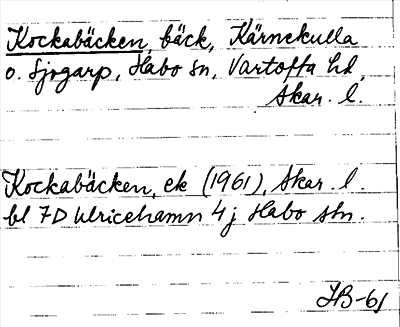 Kockabäcken, bäck, Kärnekulla
o. Sjogarp, Habo sn, Vartofta hd,
Skar. l.
Kockabäcken, ek (1961), Skar. l.
bl 7D Ulricehamn 4j Habo skn.
IB-61